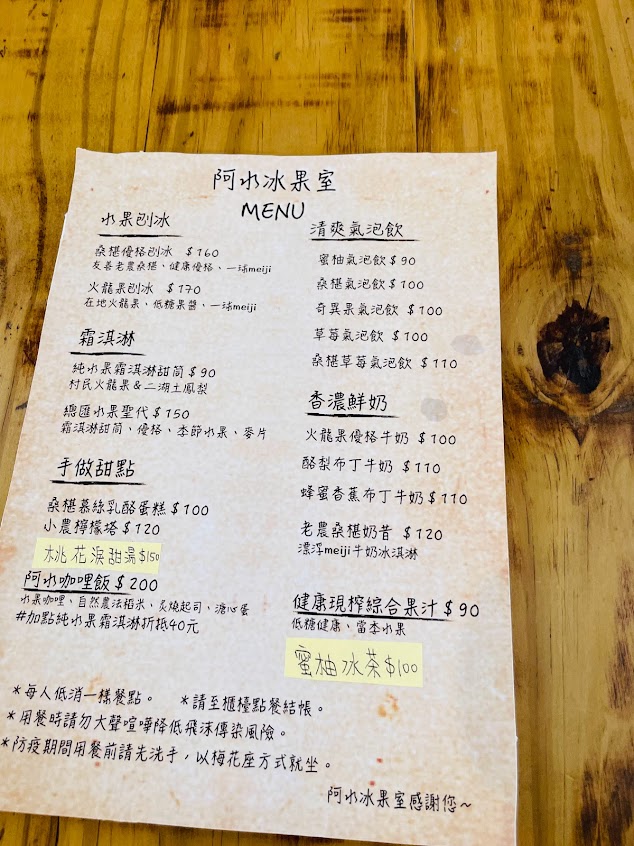 阿水冰果室
MENU
水果刨冰
桑椹優格刨冰 $160
友善老農桑椹、健康優格、一球meiji
火龍果刨冰 $170
在地火龍果、低糖果醬、一球meiji
霜淇淋
純水果霜淇淋甜筒 $90
村民火龍果&二湖土鳳梨
總匯水果聖代 $150
霜淇淋甜筒、優格、季節水果、麥片
手做甜點
桑椹慕絲乳酪蛋糕 $100
小農檸檬塔 $120
桃花淚甜湯$150
阿水咖哩飯 $200
水果咖哩、自然農法稻米、炙燒起司、溏心蛋
#加點純水果霜淇淋折抵40元
清爽氣泡飲
蜜柚氣泡飲 $90
桑椹氣泡飲 $100
奇異果氣泡飲 $100
草莓氣泡飲 $100
桑椹草莓氣泡飲 $110
香濃鮮奶
火龍果優格牛奶 $100
酪梨布丁牛奶 $110
蜂蜜香蕉布丁牛奶 $110
老農桑椹奶昔 $120
漂浮meiji牛奶冰淇淋
健康現榨綜合果汁 $90
低糖健康、當季水果
蜜柚冰茶$100
*每人低消一樣餐點。 *請至櫃檯點餐結帳。
*用餐時請勿大聲喧嘩降低飛沫傳染風險。
*防疫期間用餐前請先洗手，以梅花座方式就坐。
阿水冰果室感謝您~